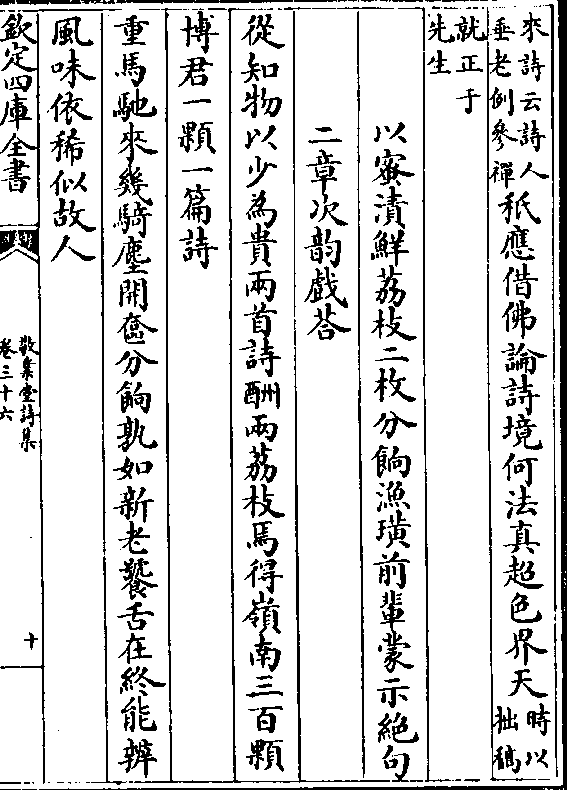 來詩云詩人
垂老例參禪
秖應借佛論詩境何法真超色界天
時以
拙稿
就正于
先生
以蜜漬鮮荔枝二枚分餉漁璜前輩蒙示絶句
二章次韵戲荅
從知物以少為貴兩首詩酬兩荔枝焉得嶺南三百顆
博君一顆一篇詩
重馬馳來幾騎塵開奩分餉孰如新老饕舌在終能辨
風味依稀似故人
欽定四庫全書
敬業堂詩集
卷三十六
十